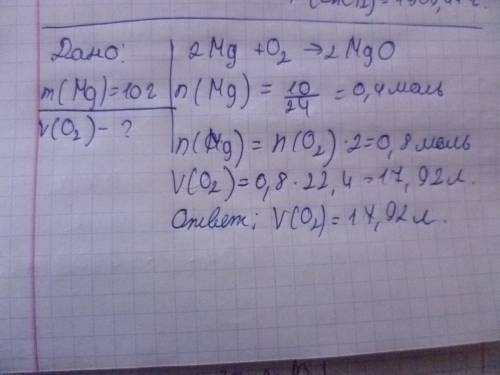 Дано:
2Mg + O₂ → 2MgO
m(Mg)=10г
n(Mg) = 10/24 = 0,4 моль
V(O₂) - ?
n(Mg) = n(O₂)·2=0,8 моль
V(O₂)=0,8·22,4=17,92 л.
Ответ: V(O₂)=17,92 л.